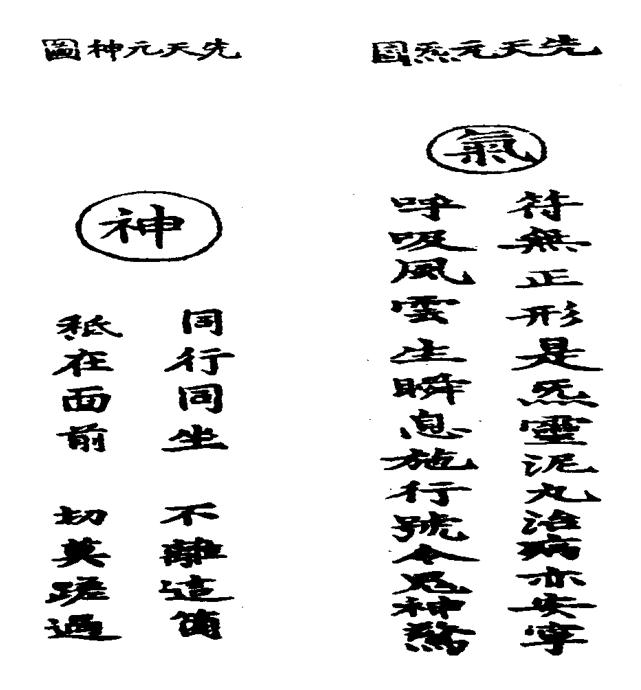 先天元炁圖
氣
符無正形是炁靈泥丸治病亦安寧
呼吸風雲生瞬息施行號令鬼神驚
先天元神圖
神
同行同坐 不離這箇
秪在面前 切莫蹉過